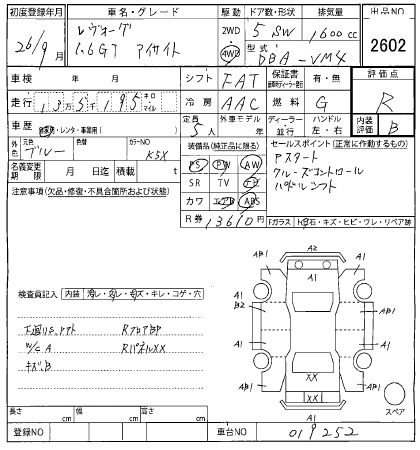 初度登録年月 車名・グレード 駆動 ドア数・形状 排気量 出品NO
26/9月 レヴォーグ 1.6GT アイサイト 2WD・4WD 5 SW 1600cc
型式 DBA-VM4 2602
車検 年 月 シフト FAT 保証書 有・無 評価点
走行 13万5千195 キロ・マイル 冷房 AAC 燃料 G R
車歴 自家用・レンタ・事業用( ) 定員 5人 外車モデル 年 ディーラー・並行 ハンドル 左・右 内装評価 B
外色 元色 ブルー 色替 カラーNO K5X
装備品(純正品に限る)
セールスポイント(正常に作動するもの)
名義変更期限 月 日迄 積載 t
PS PW AW
アスタート
SR TV ナビ
クルーズコントロール
カワ エアB ABS
パドルシフト
注意事項(欠品・修復・不具合箇所および状態)
R券 13610円
Fガラス 飛石・キズ・ヒビ・ワレ・リペア跡
検査員記入 内装 汚レ・スレ・キズ・キレ・コゲ・穴
R
W/C A RパネルXX
キズ B
A2
AB1 A1 A1 AB1
A1 A1
B2 A1
A1 A1
XX
AB1 XX AB1
A1
スペア
長さ cm 幅 cm 高さ cm
登録NO 車台NO 019252